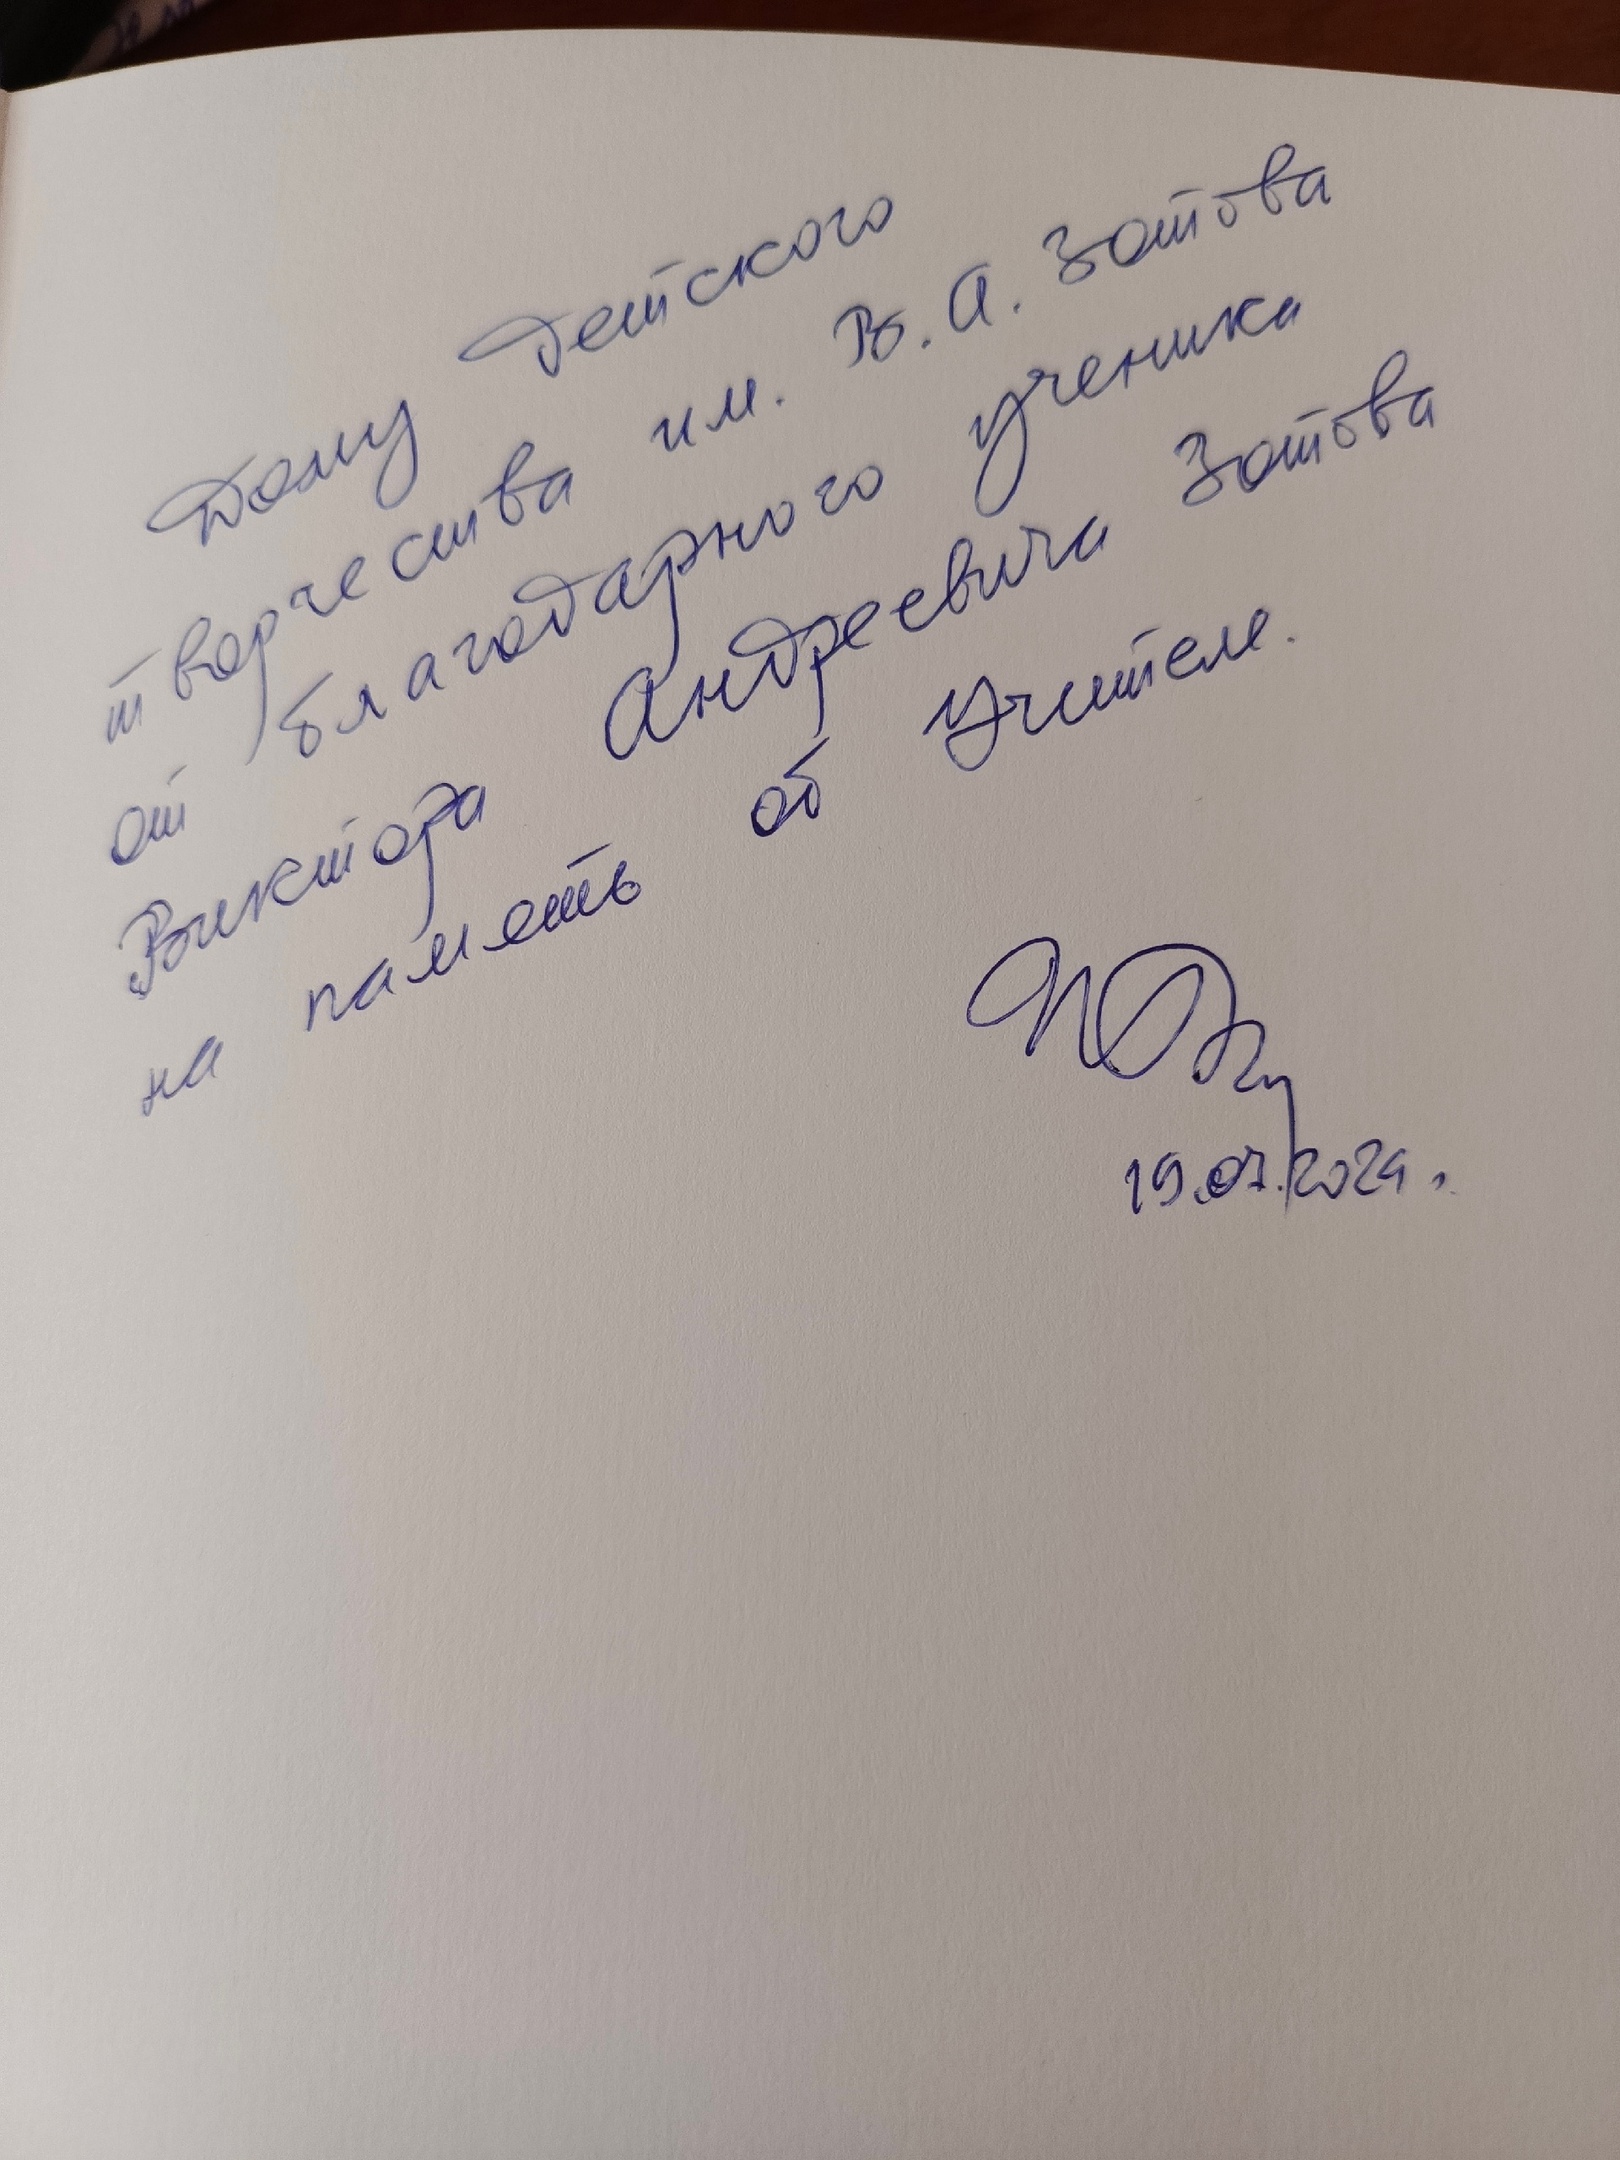 Дому Детского
творчества им. В. А. Зотова
от благодарного ученика
Виктора Андреевича Зотова
на память об Учителе.
19.07.2024.